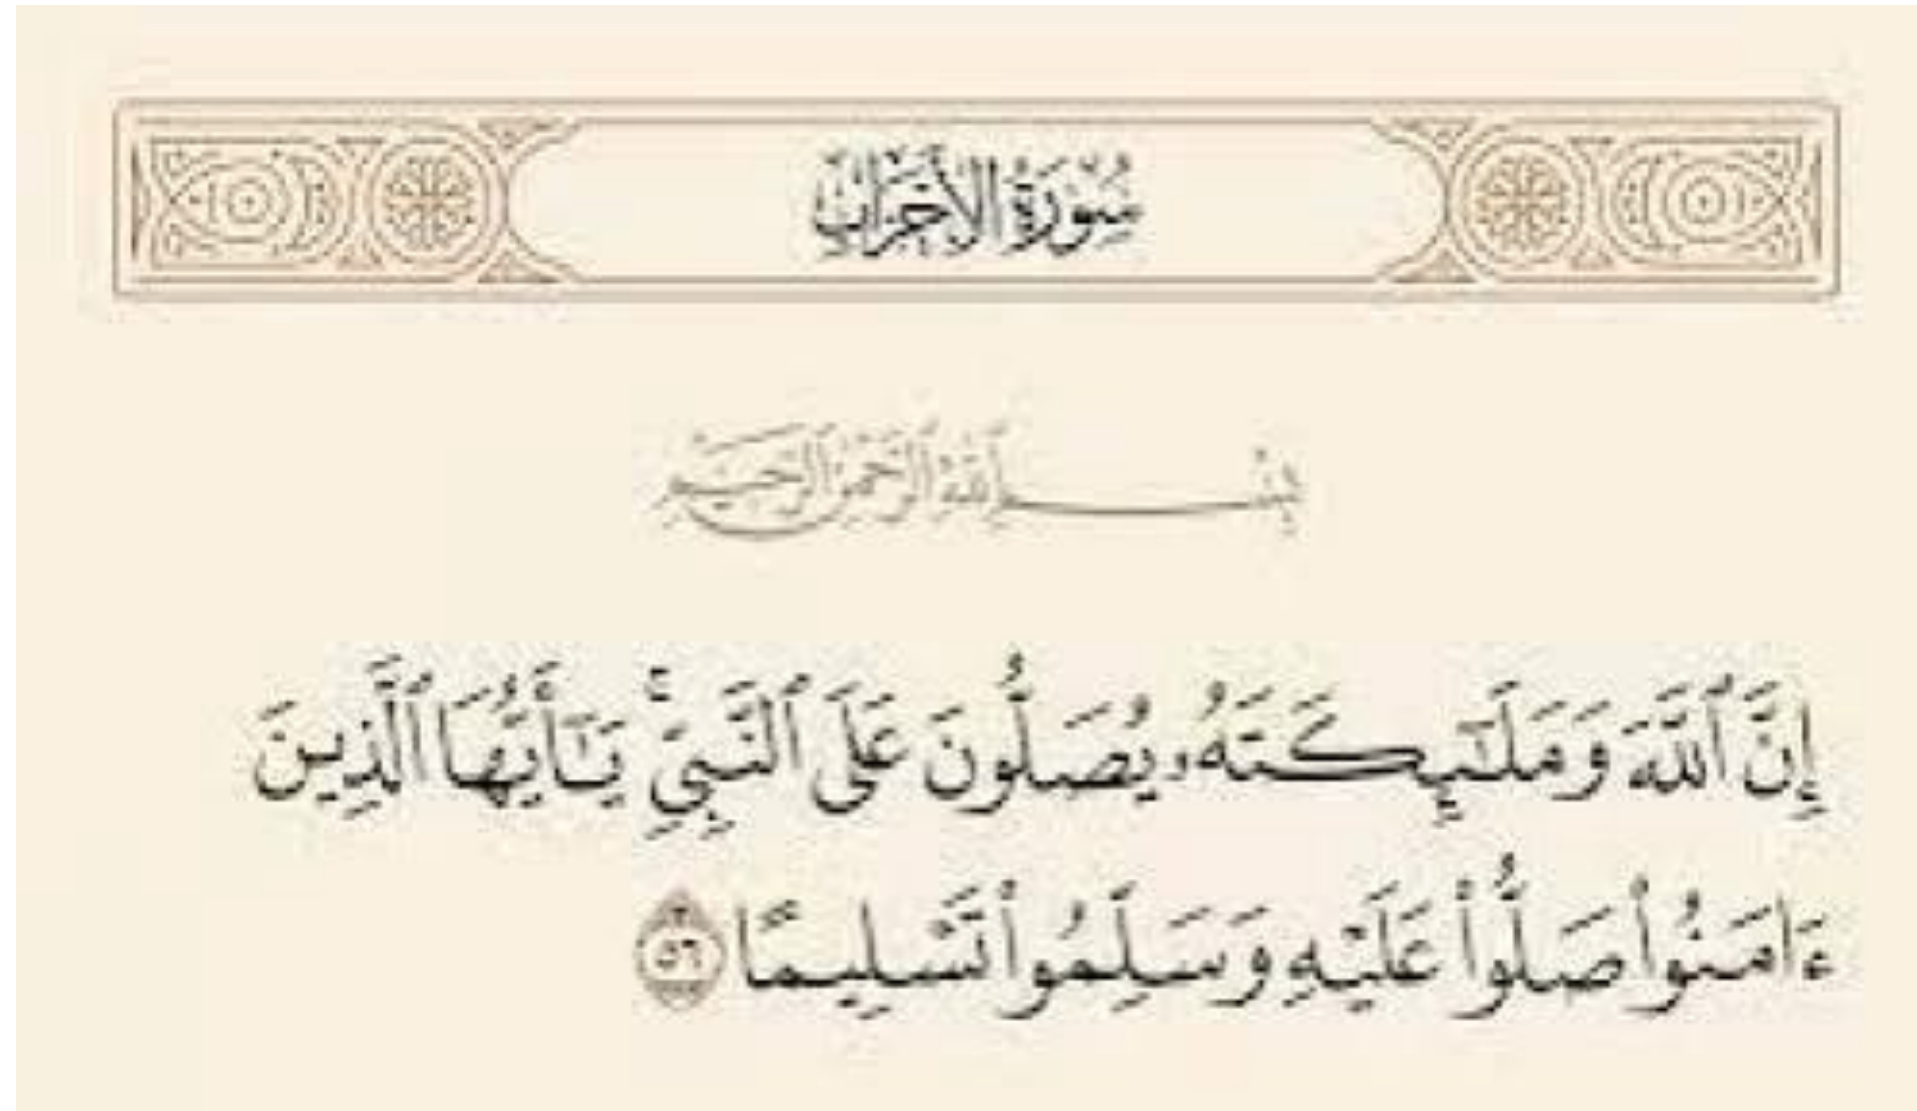 سُورَةُ الأَحْزَابِ
بِسْمِ اللَّهِ الرَّحْمَٰنِ الرَّحِيمِ
إِنَّ ٱللَّهَ وَمَلَٰٓئِكَتَهُۥ يُصَلُّونَ عَلَى ٱلنَّبِيِّۚ يَٰٓأَيُّهَا ٱلَّذِينَ
ءَامَنُوا۟ صَلُّوا۟ عَلَيْهِ وَسَلِّمُوا۟ تَسْلِيمًا ٥٦